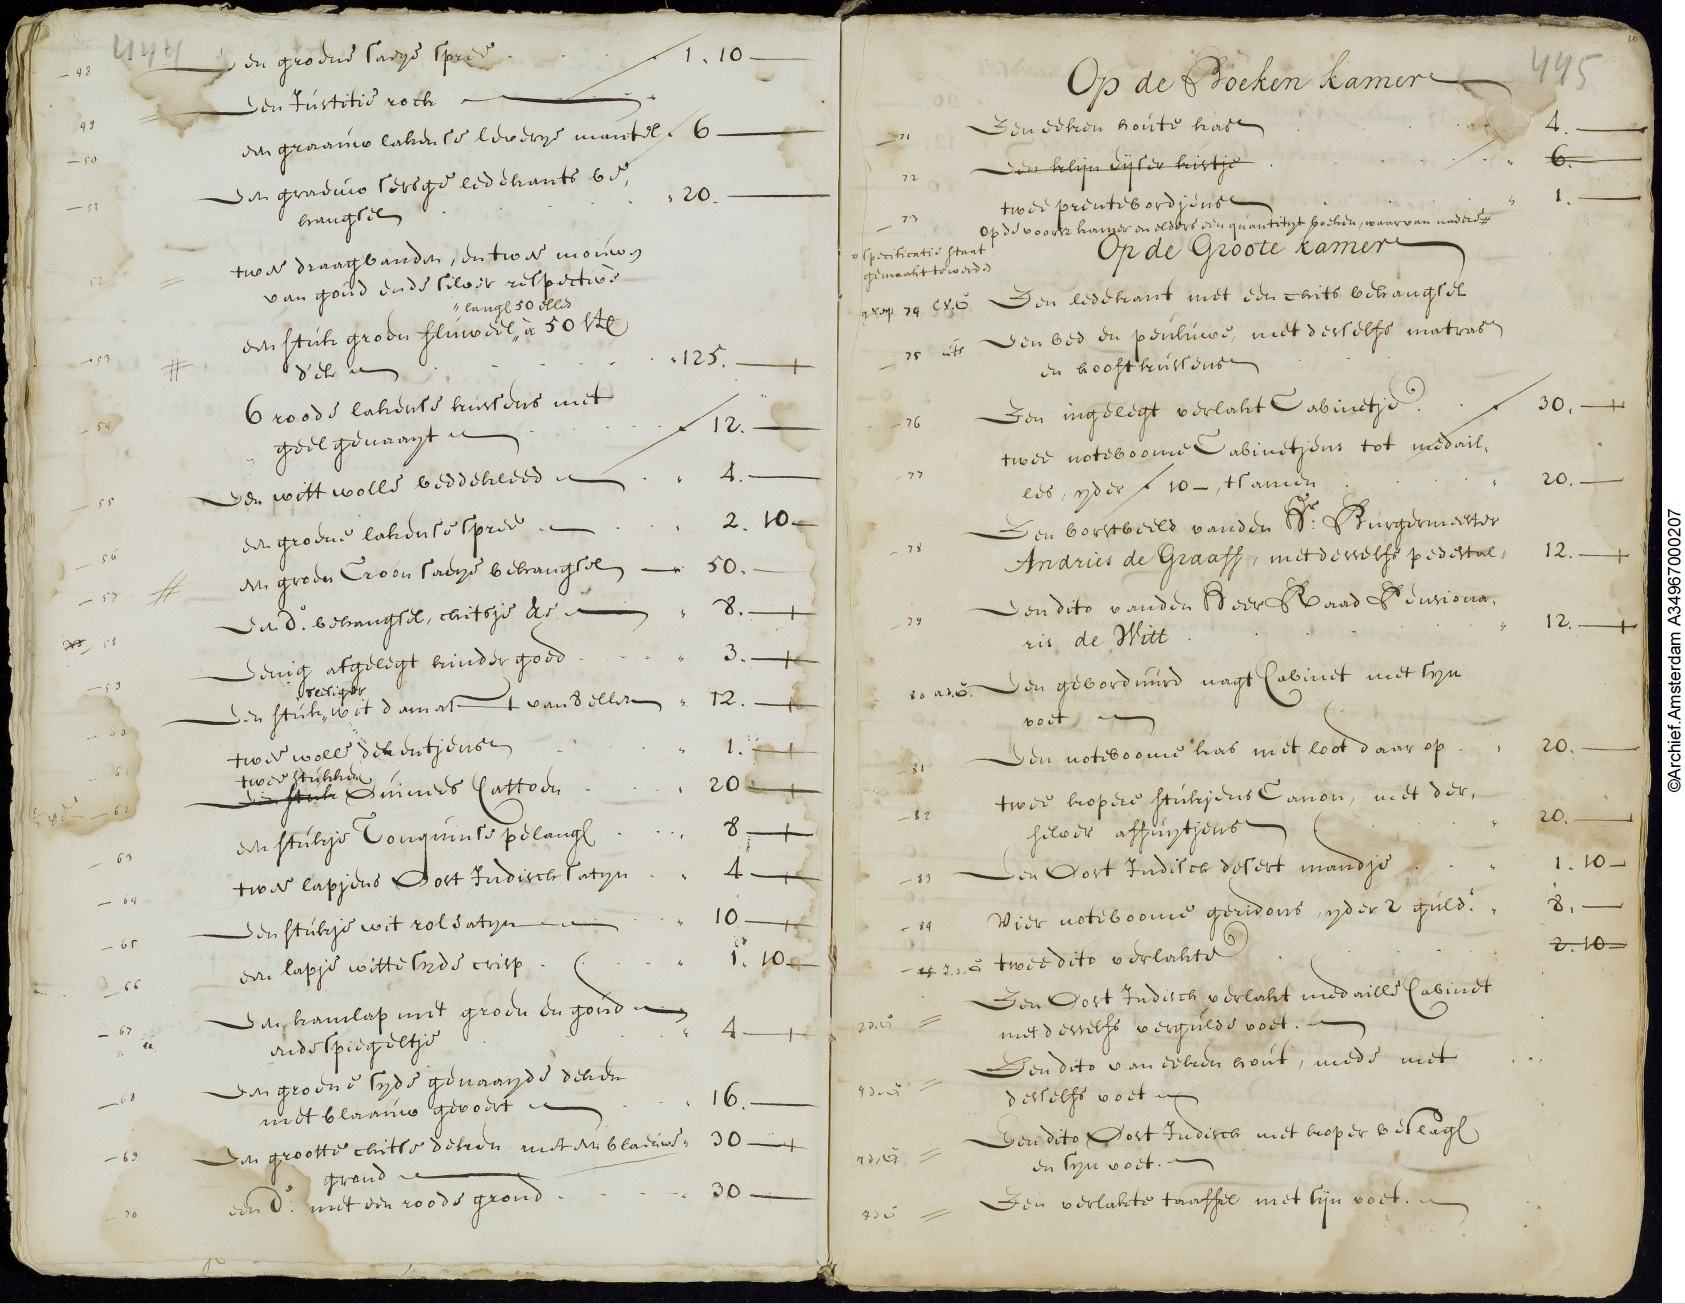 444
48 Een groene saeye spree 1. 10
49 Een Justitie rock
50 een graauw lakense leverye mantel 6
51 Een graeuw sersge ledekants be,
hangsel 20.
52 twee draagbanden, en twee mouwen
van goud ende silver respective
langh 50 ellen
53 een stuk groen fluweel, à 50
d'el 125.
54 6 roode lakense kussens met
geel genaayt 12.
55 Een witt wolle beddekleed 4.
56 een groene lakense spree 2. 10
57 een groen Croon saeye behangsel 50.
58 Een do. behangsel, chitsje &c 8.
59 Eenig afgelegt kinder goed 3.
60 Een stuk wit damast van 8 ellen 12.
61 twee wolle dekentjens 1.
twee stukken
62 een stuk Guinees Cattoen 20
63 een stukje Tonquinse pelangh 8
64 twee lapjens Oost Indisch satyn 4
65 Een stukje wit rol satyn 10
66 een lapje witte syde crisp 1. 10
67 Een kamlap met groen en goud
ende spiegeltje 4
68 Een groene syde genaayde deken
met blaauw gevoert 16.
69 Een grootte chitse deken met een blaeuwe
grond 30
70 een do. met een roode grond 30
445
Op de Boeken kamer
71 Een eeken houte kas 4.
72 Een klijn eijser kistje 6.
73 twee prentebordjens 1.
Op de voorz kamer en elders een quantityt boeken, waarvan nadere #
# specificatie staat
gemaakt te werden
Op de Groote kamer
74 Een ledekant met een chits behangsel
75 Een bed en peuluwe, met desselfs matras
en hooftkussens
76 Een ingelegt verlakt Cabinetje 30.
77 twee noteboome Cabinetjens tot medail,
les, yder f 10 –, tsamen 20.
78 Een borstbeeld vanden Hr. Burgermeester
Andries de Graaff, met desselfs pedestal 12.
79 Een dito vanden Heer Raad Pensiona,
ris de Witt 12.
80 Een geborduurd nagt Cabinet met syn
voet
81 Een noteboome kas met loot daar op 20.
82 twee kopere stukjens Canon, met der,
selver affuytjens 20.
83 Een Oost Indisch desert mandje 1. 10
84 Vier noteboome geridons, yder 2 guld. 8.
twee dito verlakte 2. 10
Een Oost Indisch verlakt medaille Cabinet
met desselfs vergulde voet.
Een dito van eeken hout, mede met
desselfs voet
Een dito Oost Indisch met koper beslagh
en syn voet.
Een verlakte taaffel met sijn voet.
©Archief.Amsterdam A34967000207